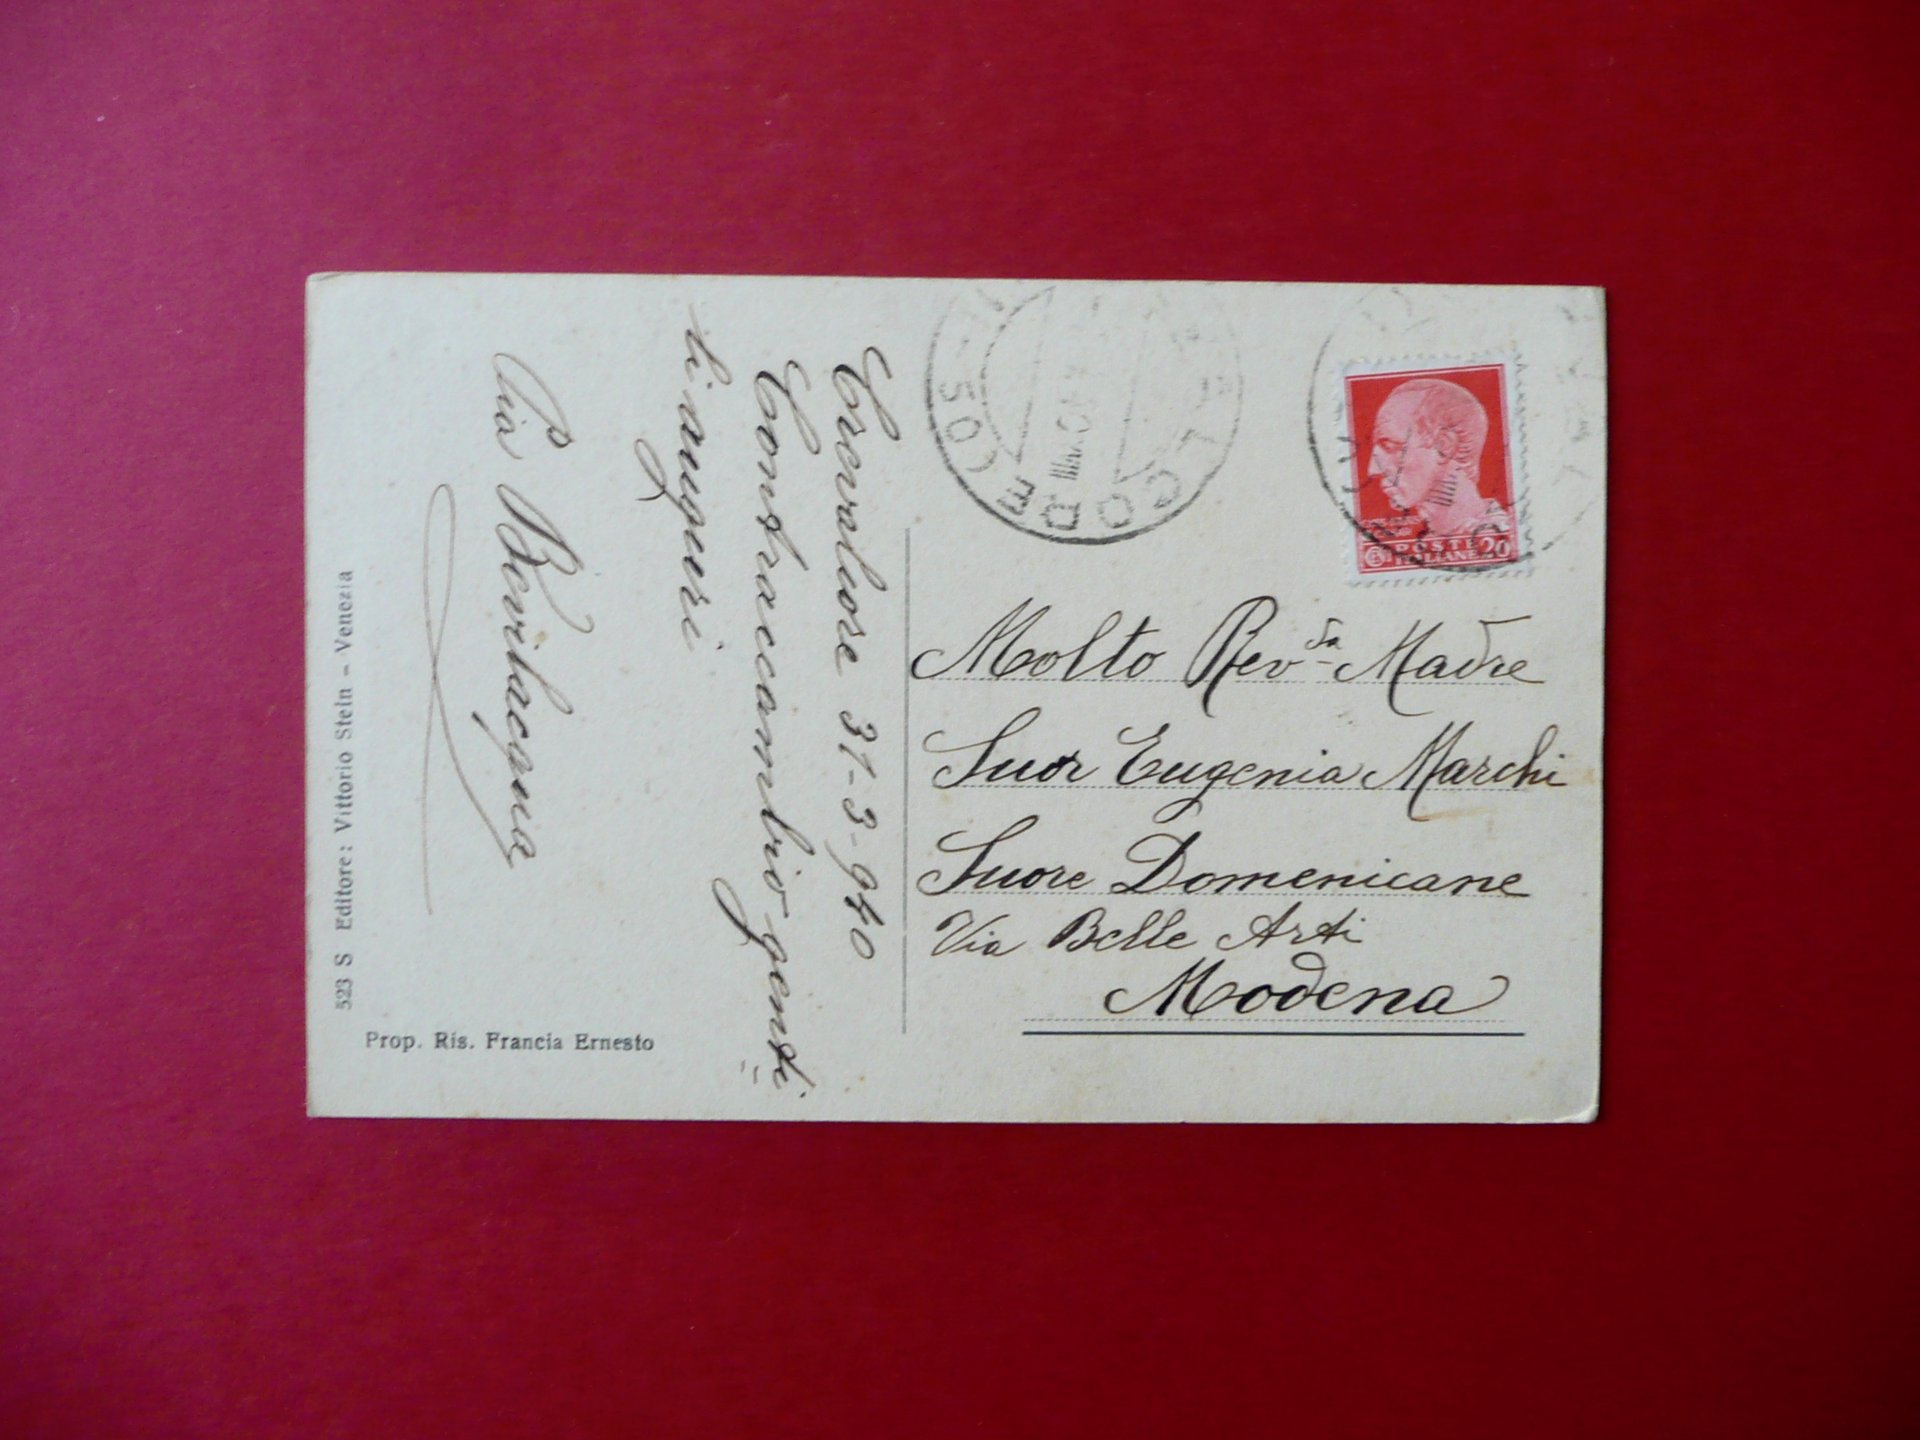 Crevalcore 31-3-940
Contraccambio genti
li auguri
Pia Bevilacqua
523 S Editore: Vittorio Stein - Venezia
Prop. Ris. Francia Ernesto
POSTE
ITALIANE 20
Molto Rev.da Madre
Suor Eugenia Marchi
Suore Domenicane
Via Belle Arti
Modena